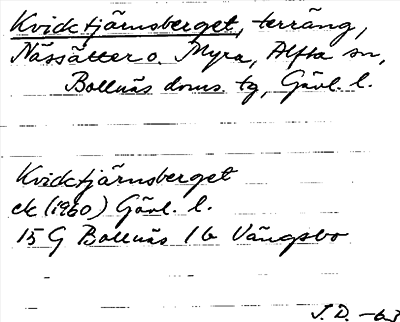 Kvicktjärnsberget, terräng,
Nässätter o. Myra, Alfta sn,
Bollnäs doms tg, Gävl. l.
Kvicktjärnsberget
ek (1960) Gävl. l.
15 G Bollnäs 1 b Vängsbo
J. D. -63